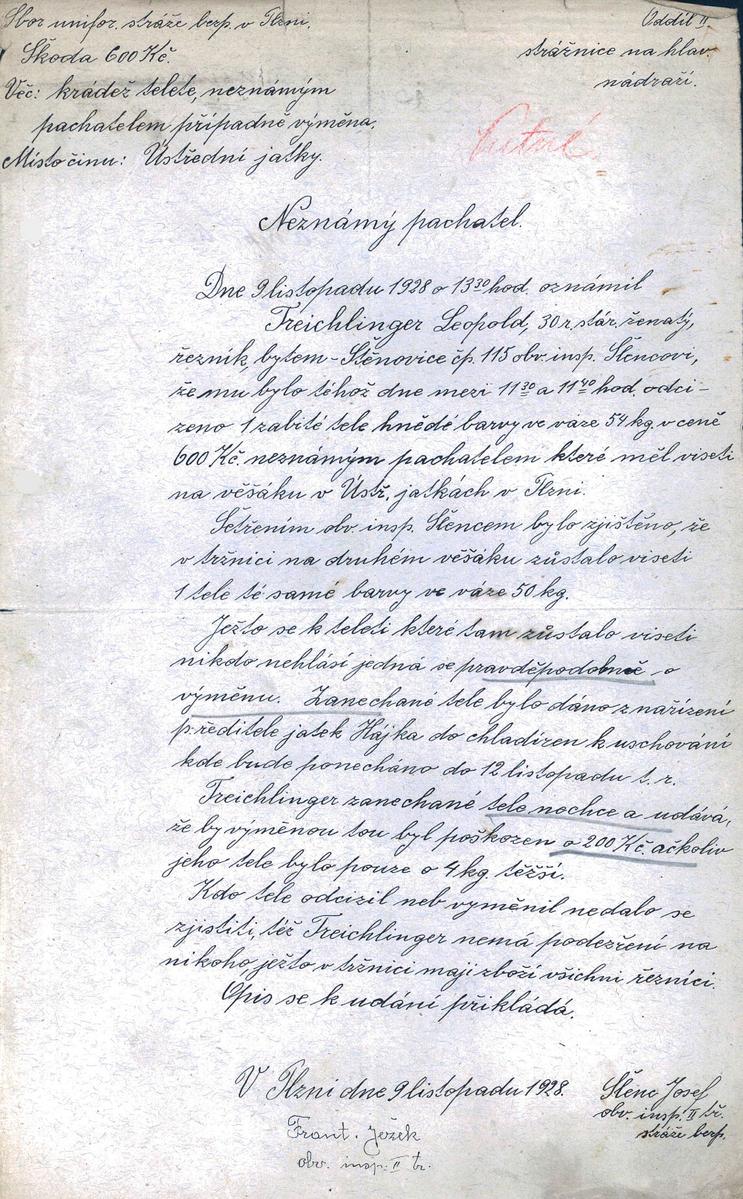 Sbor unifor. stráže bezp. v Plzni.
Oddíl II
Škoda 600 Kč.
strážnice na hlav.
nádraží.
Věc: krádež telete, neznámým
pachatelem případně výměna.
Místo činu: Ústřední jatky.
Neznámý pachatel.
Dne 9 listopadu 1928 o 13 30 hod. oznámil
Treichlinger Leopold, 30 r. stár, ženatý,
řezník, bytem - Štěnovice čp. 115 obv. insp. Šlencovi,
že mu bylo téhož dne mezi 11 30 a 11 40 hod. odci-
zeno 1 zabité tele hnědé barvy ve váze 54 kg. v ceně
600 Kč. neznámým pachatelem které měl viseti
na věšáku v Ústř. jatkách v Plzni.
Šetřením obv. insp. Šlencem bylo zjištěno, že
v tržnici na druhém věšáku zůstalo viseti
1 tele té samé barvy ve váze 50 kg.
Ježto se k teleti které tam zůstalo viseti
nikdo nehlásí jedná se pravděpodobně o
výměnu. Zanechané tele bylo dáno z nařízení
p. ředitele jatek Hájka do chladíren k uschování
kde bude ponecháno do 12 listopadu t. r.
Treichlinger zanechané tele nechce a udává,
že by výměnou tou byl poškozen o 200 Kč. ačkoliv
jeho tele bylo pouze o 4 kg těžší.
Kdo tele odcizil neb vyměnil nedalo se
zjistiti, též Treichlinger nemá podezření na
nikoho, ježto v tržnici mají zboží všichni řezníci.
Opis se k udání přikládá.
V Plzni dne 9 listopadu 1928.
Šlenc Josef
obv. insp. II tř.
stráže bezp.
Frant. Ježek
obv. insp. II tr.